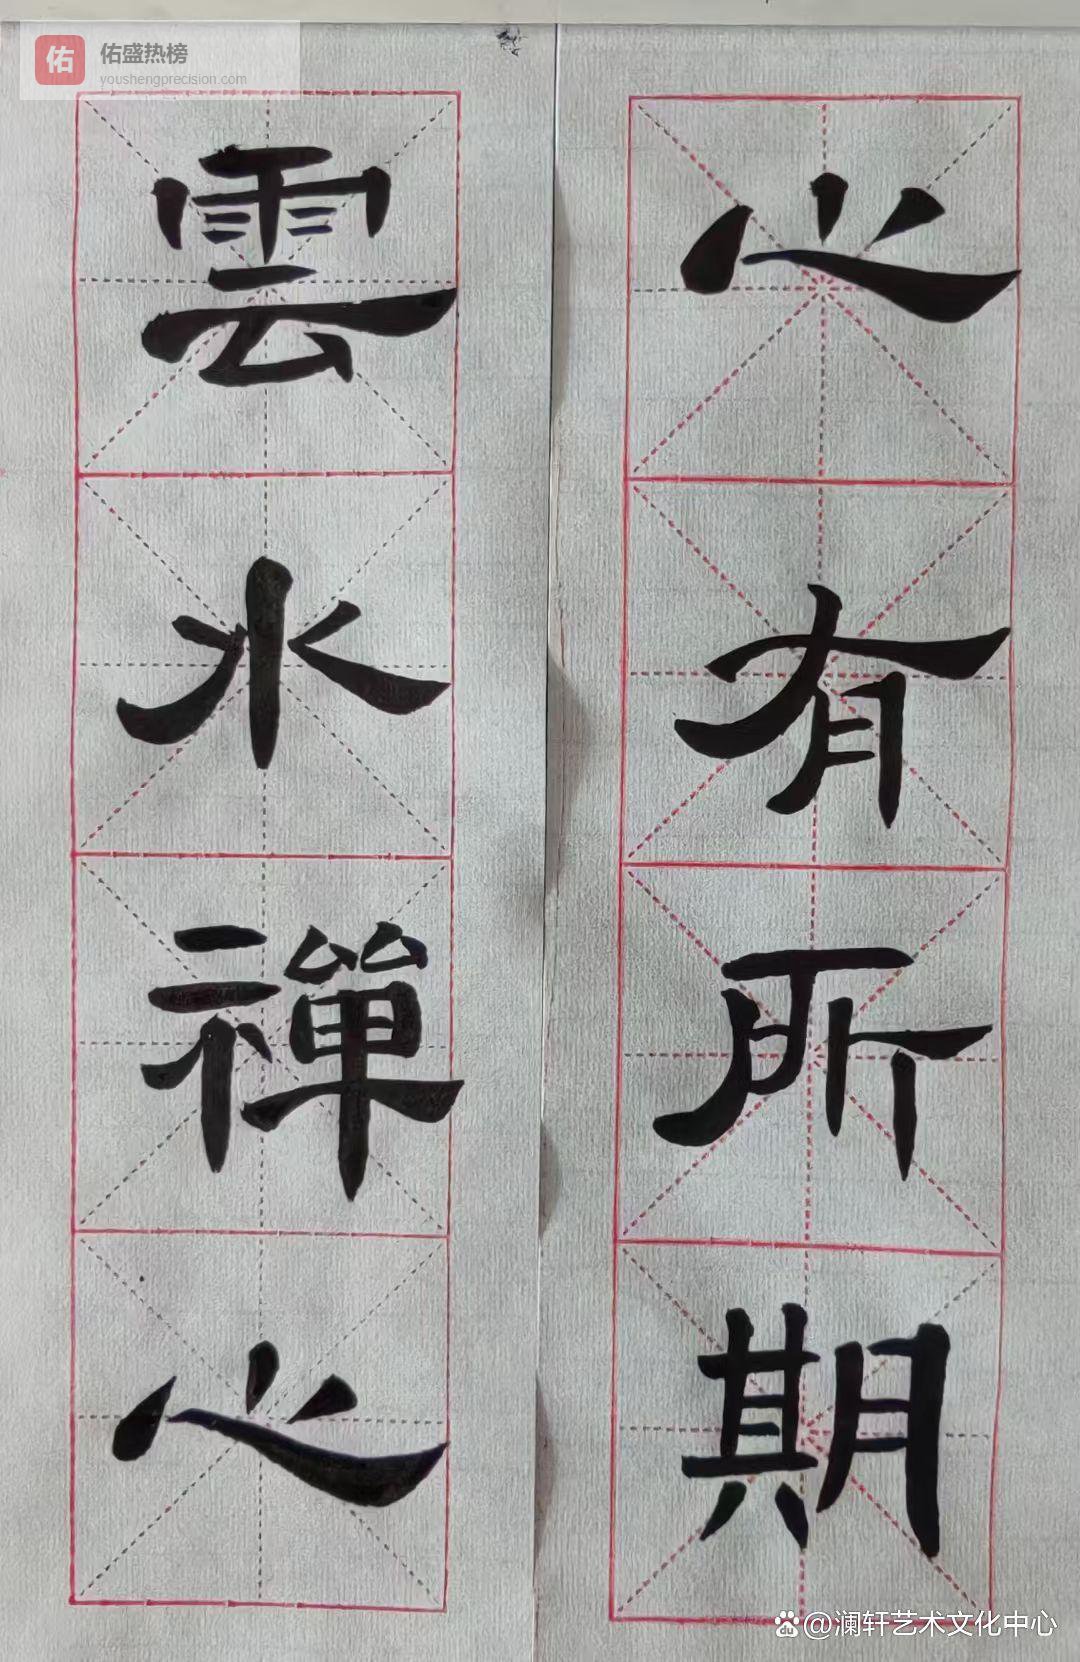 佑
佑盛热榜
youshengprecision.com
心有所期
雲水禪心
@澜轩艺术文化中心